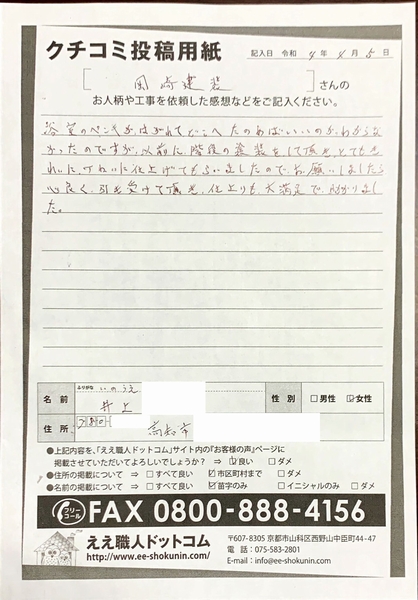 クチコミ投稿用紙
記入日 令和 4年 4月 5日
[岡崎建装]さんの
お人柄や工事を依頼した感想などをご記入ください。
浴室のペンキがはがれてどこへたのめばいいのか、わからな
かったのですが、以前に、階段の塗装をして頂き、とてもき
れいに、ていねいに仕上げてもらいましたので、お願いしましたら
心良く、引き受けて頂き、仕上りも、大満足で、助かりまし
た。
名前 ふりがな いのうえ
井上
性別 □男性 ☑女性
住所 〒780-
高知市
●上記内容を、「ええ職人ドットコム」サイト内の『お客様の声』ページに
掲載させていただいてよろしいでしょうか? ⇒ ☑良い □ダメ
●住所の掲載について ⇒ □すべて良い ☑市区町村まで □ダメ
●名前の掲載について ⇒ □すべて良い ☑苗字のみ □イニシャルのみ □ダメ
フリーコール FAX 0800-888-4156
ええ職人ドットコム
http://www.ee-shokunin.com/
〒607-8305 京都市山科区西野山中臣町44-47
電話:075-583-2801
E-mail:info@ee-shokunin.com